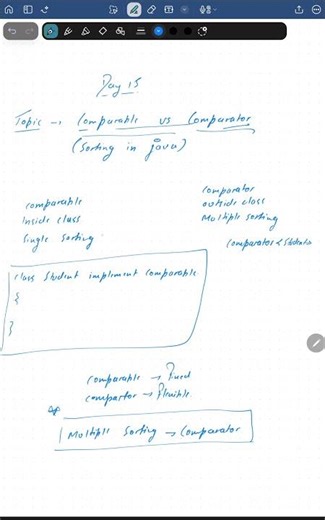 Day 15
Topic → Comparable vs Comparator
(Sorting in java)
comparable
Inside class
Single Sorting
Comparator
outside class
Multiple Sorting
Comparator < Student
class Student implement Comparable
{
}
comparable → Fixed
compartor → Flexible
Multiple Sorting → Comparator